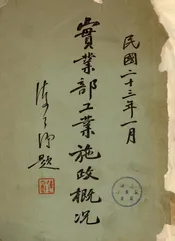 民國二十三年一月
實業部工業施政概况
題